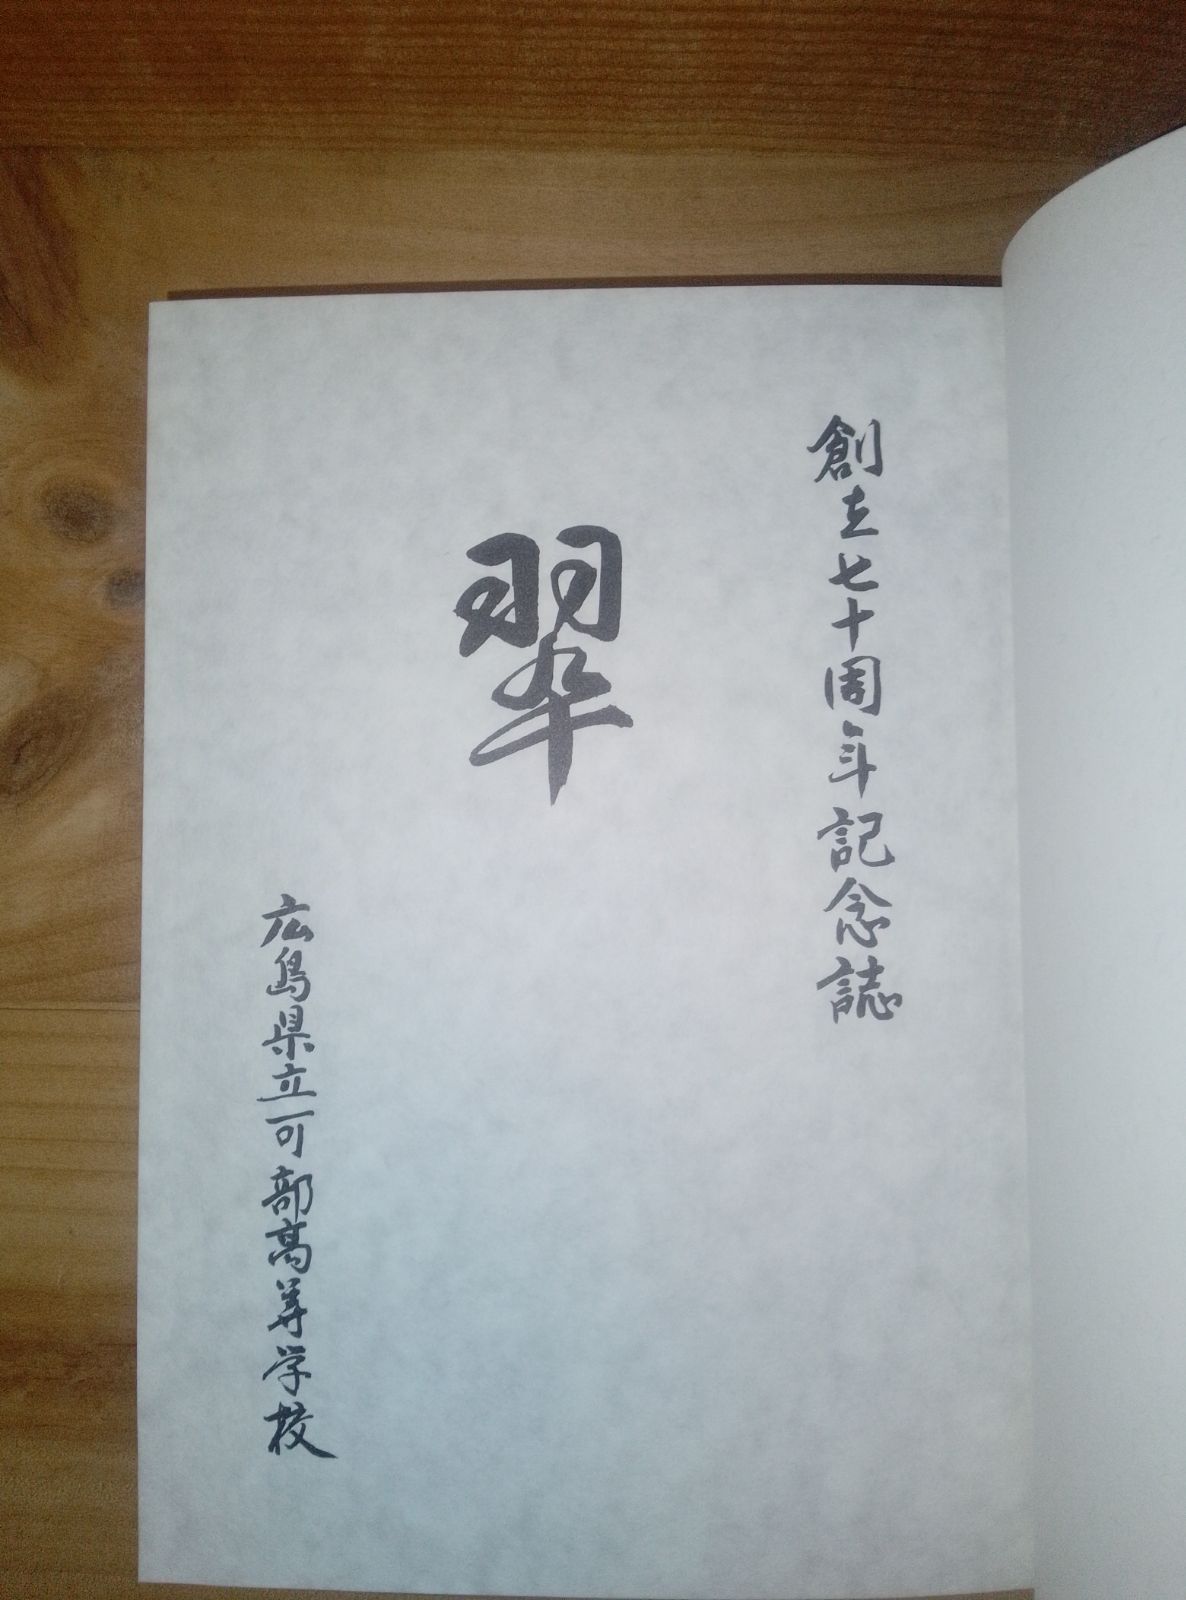 創立七十周年記念誌
翠
広島県立可部高等学校